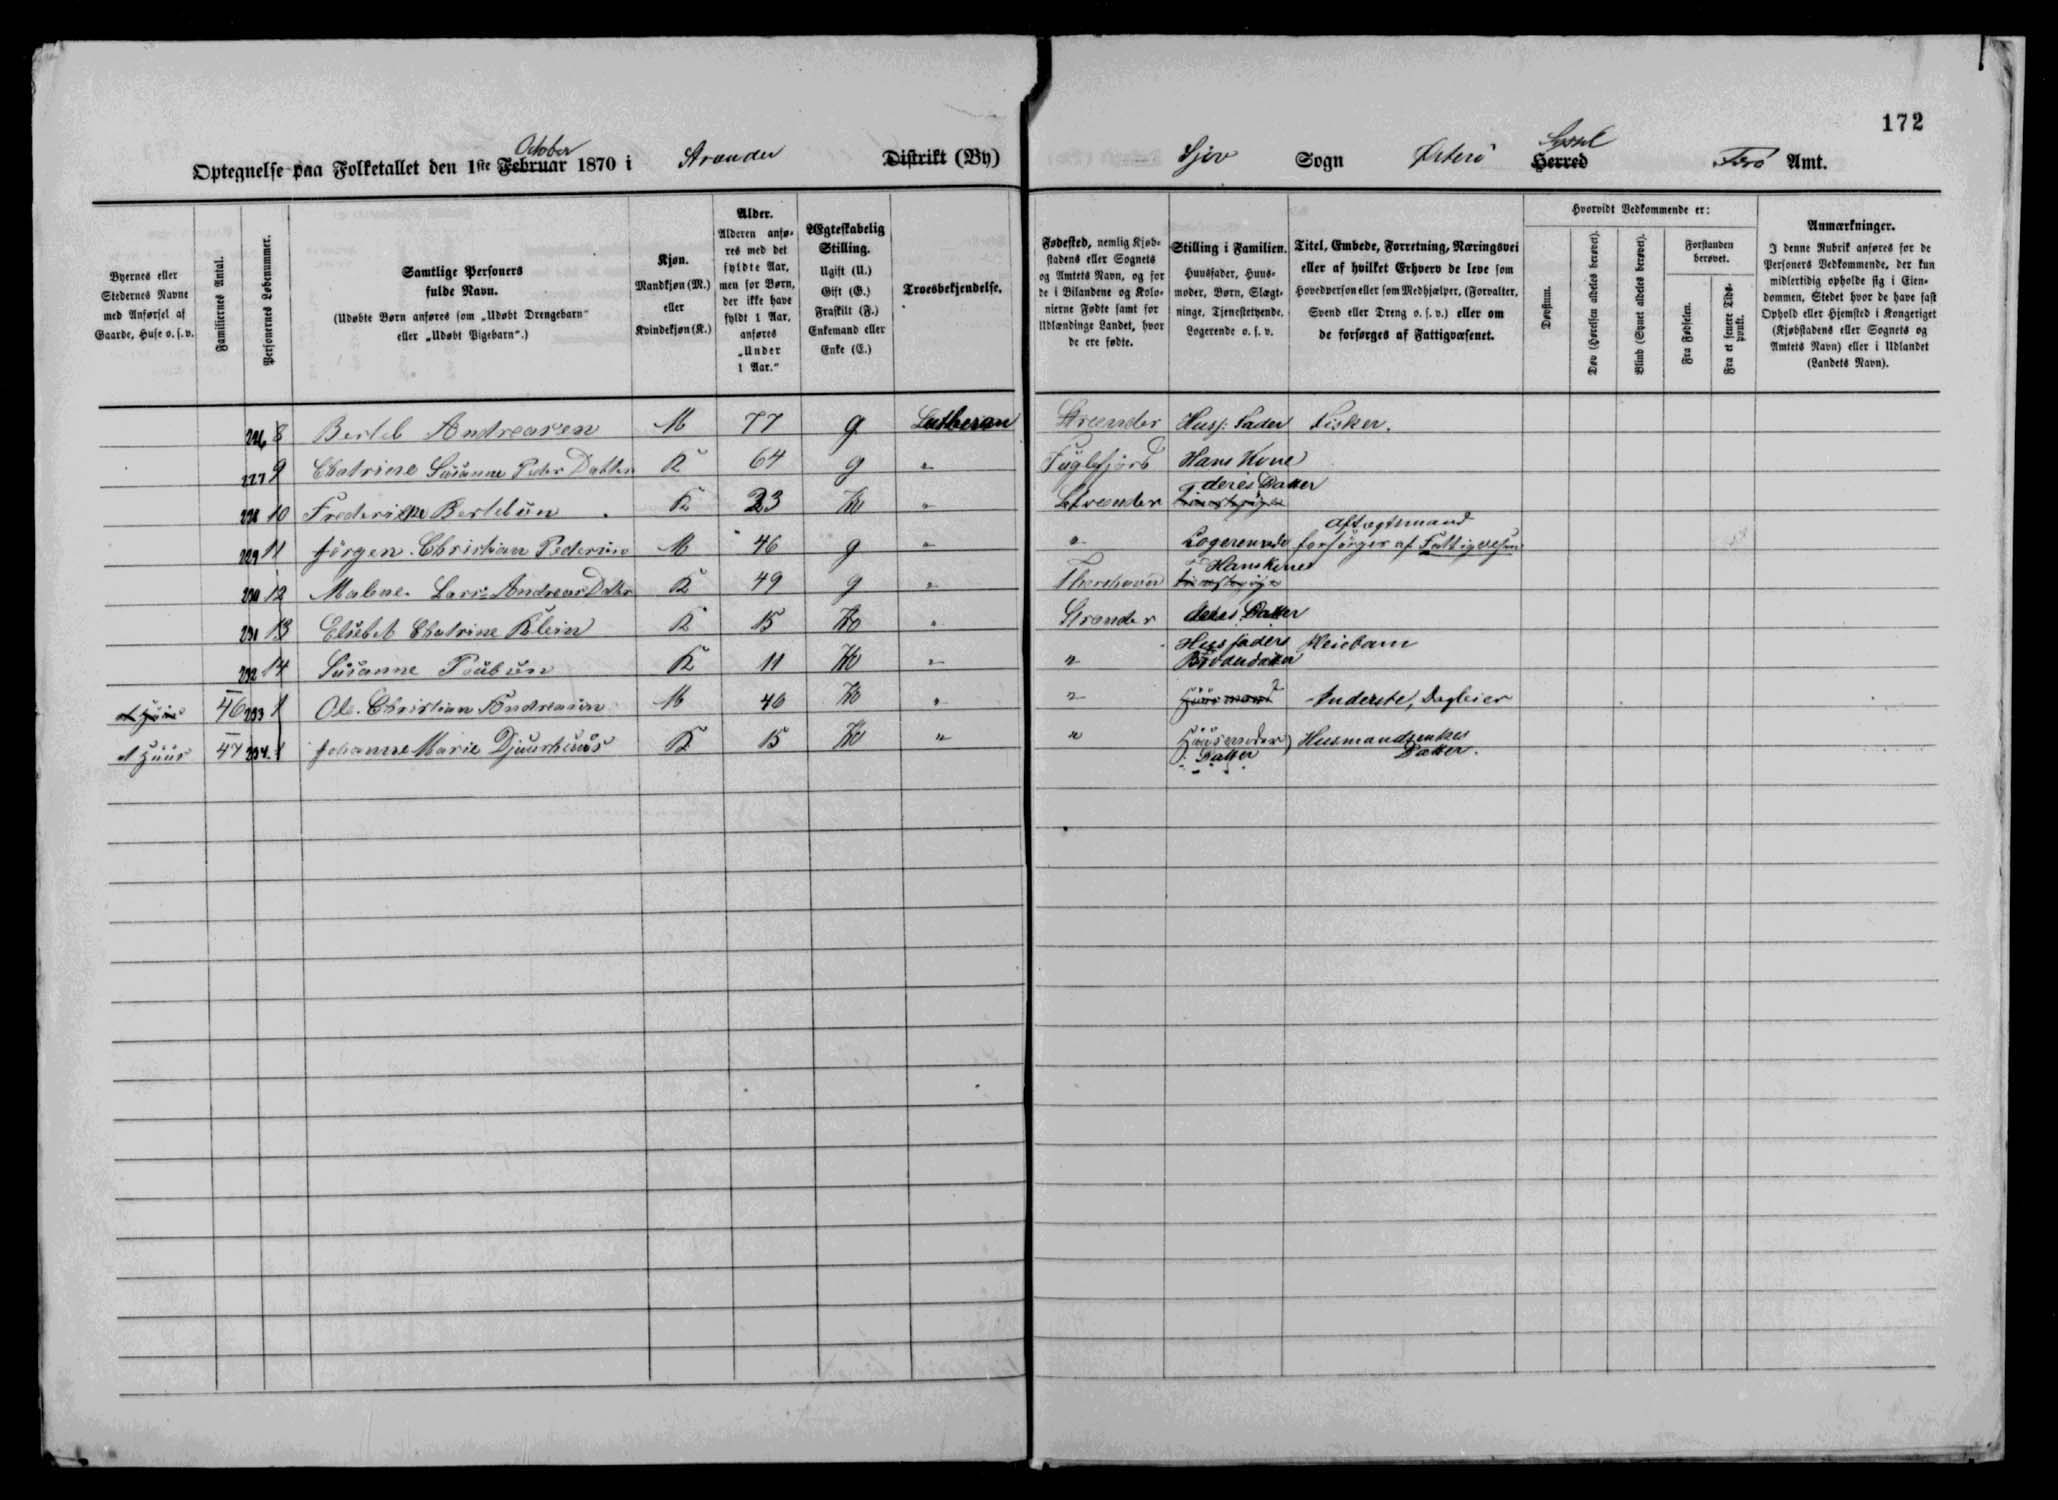 172
October
Optegnelse paa Folketallet den 1ste Februar 1870 i Strænder Distrikt (By)
Sjov Sogn Østerö Herred Syssel Færö Amt.
Byernes eller Stedernes Navne med Anførsel af Gaarde, Huse o.s.v.
Familiernes Antal.
Personernes Løbenummer.
Samtlige Personers fulde Navn.
(Udøbte Børn anføres som „Udøbt Drengebarn" eller „Udøbt Pigebarn".)
Kjøn.
Mandkjøn (M.) eller Kvindekjøn (K.)
Alder.
Alderen anføres med det fyldte Aar, men for Børn, der ikke have fyldt 1 Aar, anføres „Under 1 Aar."
Ægteskabelig Stilling.
Ugift (U.)
Gift (G.)
Fraskilt (F.)
Enkemand eller Enke (E.)
Troesbekjendelse.
Fødested, nemlig Kjøbstadens eller Sognets og Amtets Navn, og for de i Bilandene og Kolonierne Fødte samt for Udlændinge Landet, hvor de ere fødte.
Stilling i Familien.
Huusfader, Huusmoder, Børn, Slægtninge, Tjenestetyende, Logerende o.s.v.
Titel, Embede, Forretning, Næringsvei eller af hvilket Erhverv de leve som Hovedperson eller som Medhjælper, (Forvalter, Svend eller Dreng o.s.v.) eller om de forsørges af Fattigvæsenet.
Hvorvidt Vedkommende er:
Døvstum.
Døv (Hørelsen aldeles berøvet).
Blind (Synet aldeles berøvet).
Forstanden berøvet.
Fra Fødselen.
Fra et senere Tidspunkt.
Anmærkninger.
I denne Rubrik anføres for de Personers Vedkommende, der kun midlertidig opholde sig i Eiendommen, Stedet hvor de have fast Ophold eller Hjemsted i Kongeriget (Kjøbstadens eller Sognets og Amtets Navn) eller i Udlandet (Landets Navn).
226 8 Bertel Andreasen M 77 g Lutheran Strænder Husf: Fader Fisker.
227 9 Chatrine Susanne Peder Datter K 64 g " Fuglefjord Hans Kone
228 10 Frederikke Bertelsen K 23 " Strænder deres Datter
Aftægtsmand
229 11 Jörgen Christian Pedersen M 46 g " " Logerende forsörges af Fattigvesen
230 12 Malene Lars Andreas Datter K 49 g " Thorshavn Hans Kone
231 13 Elsebet Chatrine Klein K 15 " Strænder deres Datter
232 14 Susanne K 11 " " Husfaders Broderdatter Pleiebarn
et Huus 46 233 1 Ole Christian Andreasen M 40 " " Huusmand Inderste, Dagleier
et Huus 47 234 1 Johanne Marie Djuurhuus K 15 " " Huusmoder Datter Husmandsenkes Datter.